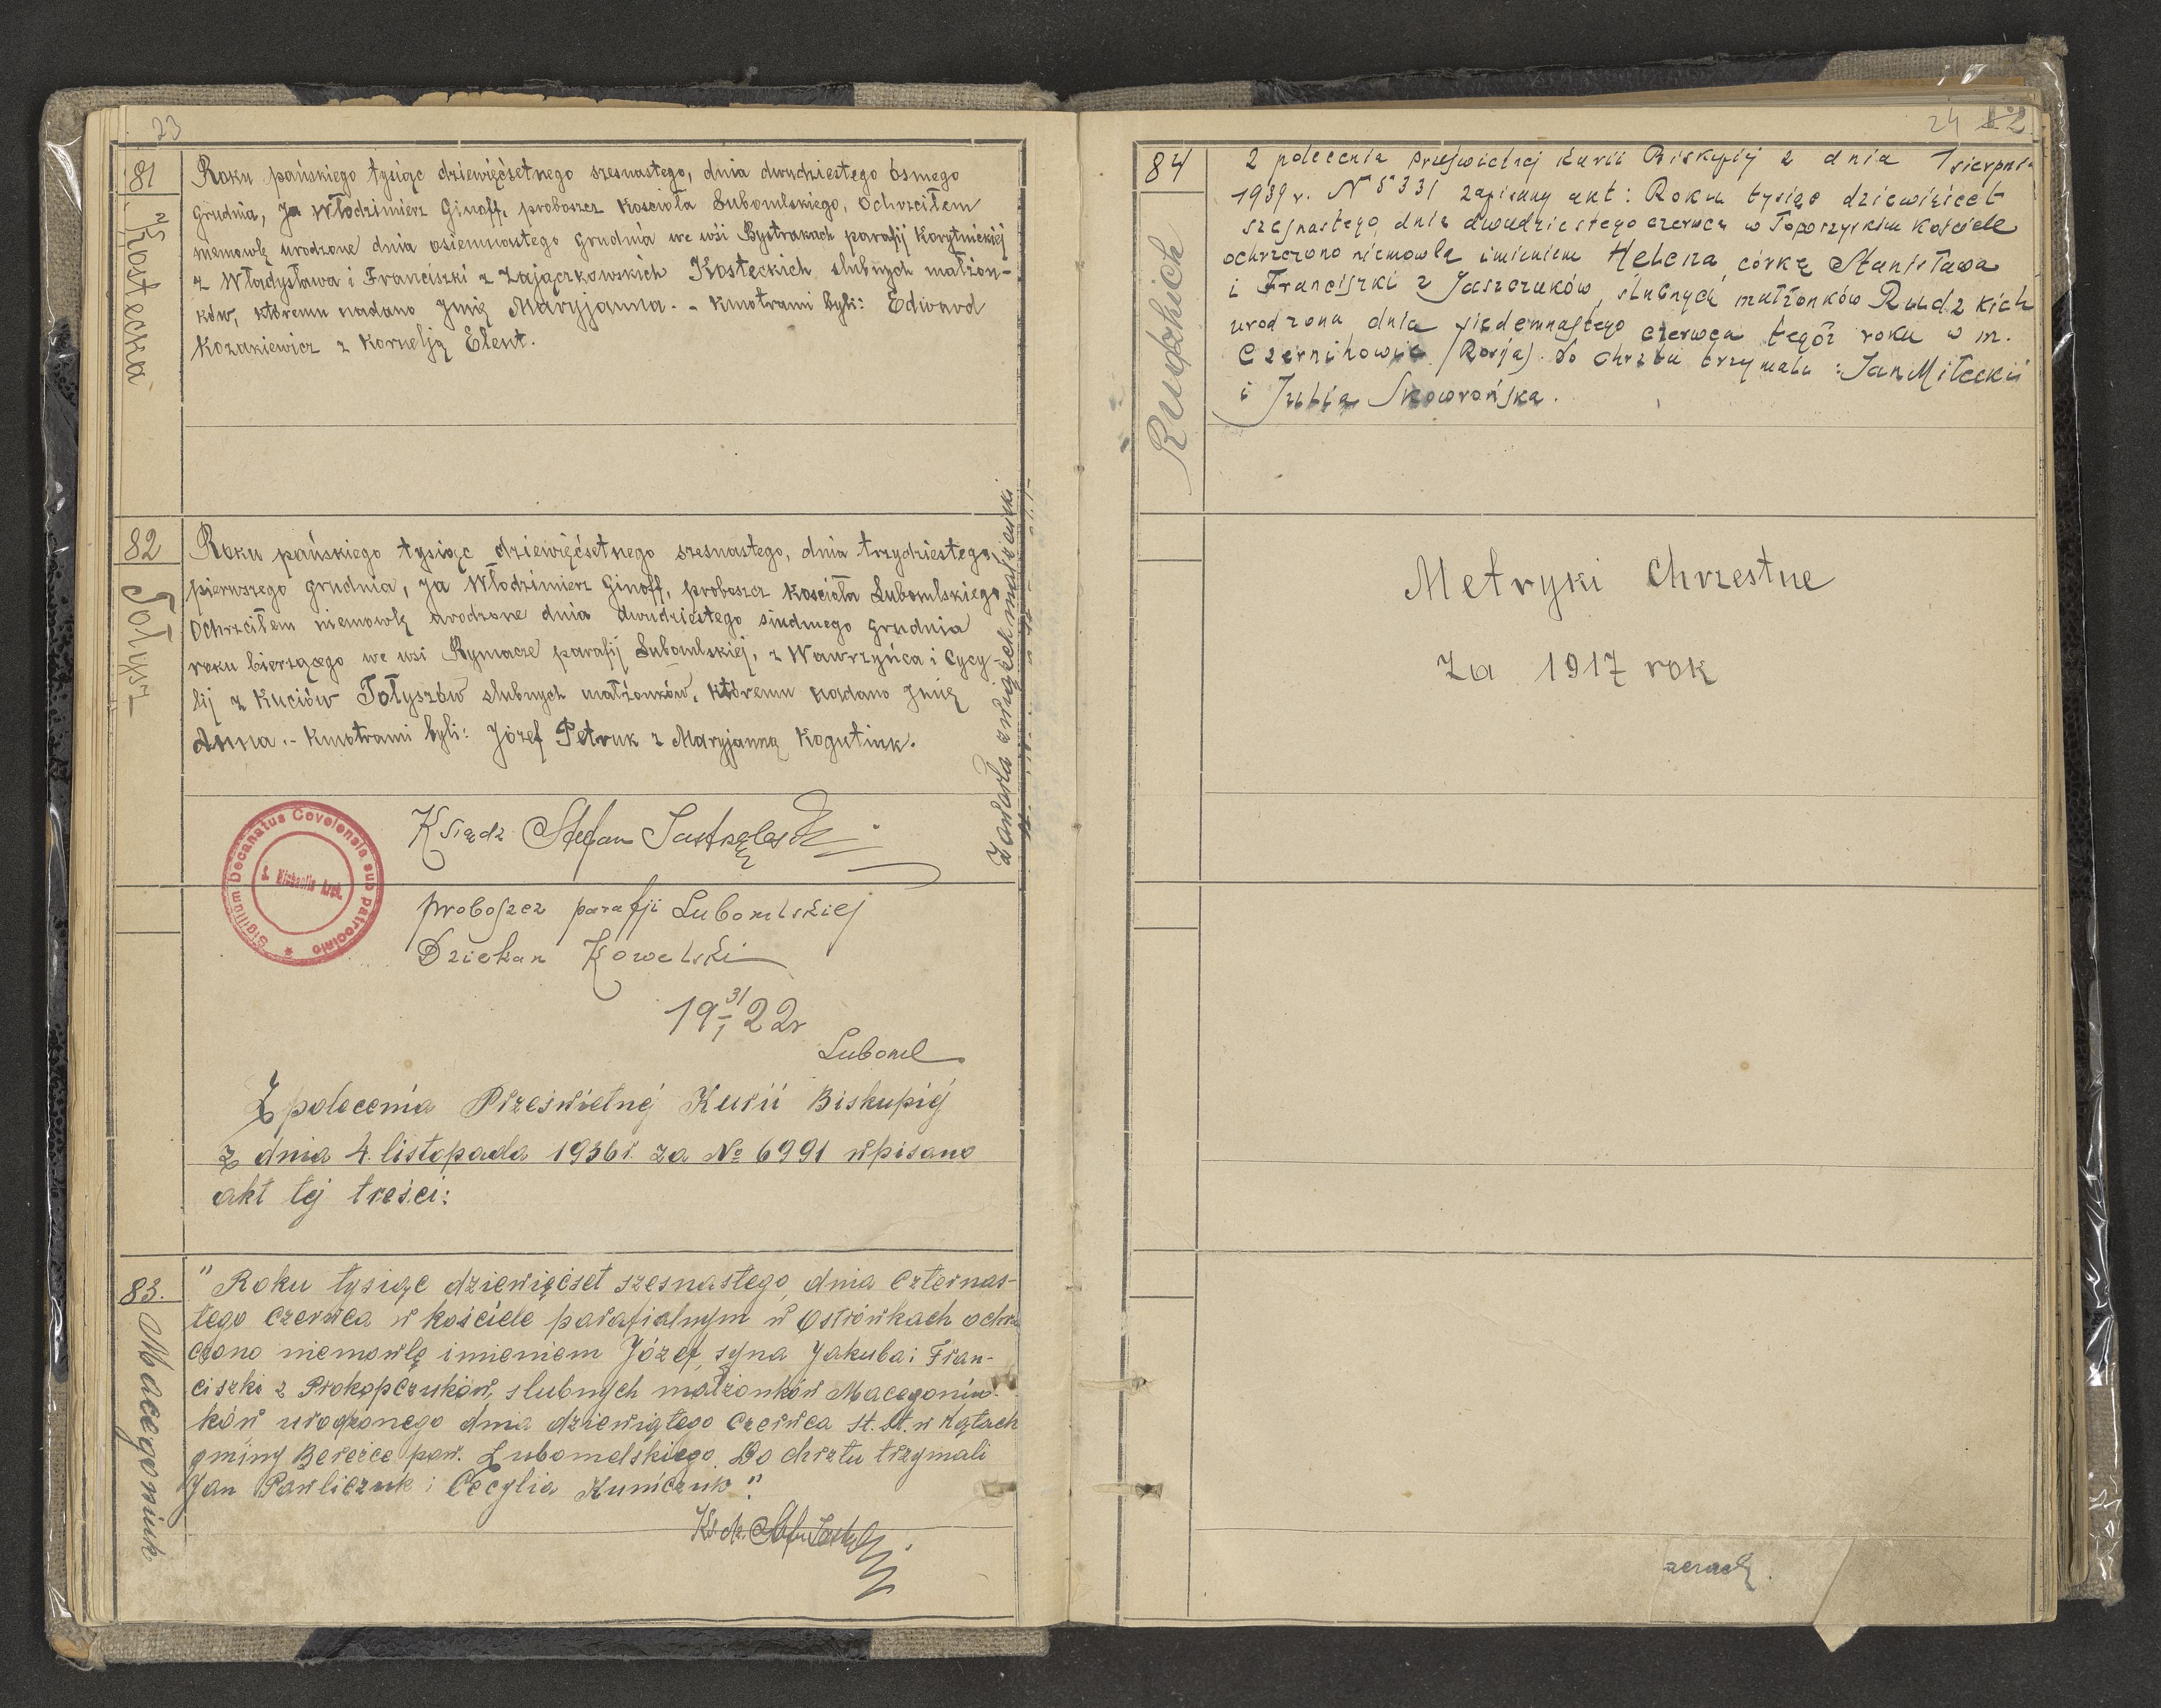 23
81
Kostecka
Roku pańskiego tysiąc dziewięćsetnego szesnastego, dnia dwudziestego ósmego
Grudnia, Ja Włodzimierz Ginoff, proboszcz Kościoła Lubomlskiego, Ochrzciłem
niemowlę urodzone dnia osiemnastego Grudnia we wsi Bystrakach parafij Korytnickiej
z Władysława i Franciszki z Zajączkowskich Kosteckich slubnych małżon-
ków, któremu nadano Jmię Maryjanna. - Kmotrami byli: Edward
Kozakiewicz z Kornelją Elent.
82
Tołysz
Roku pańskiego tysiąc dziewięćsetnego szesnastego, dnia trzydziestego
pierwszego grudnia, Ja Włodzimierz Ginoff, proboszcz Kościoła Lubomlskiego
Ochrzciłem niemowlę urodzone dnia dwudziestego siudmego grudnia
roku bierzącego we wsi Rymacze parafij Lubomlskiej, z Wawrzyńca i Cycy-
lij z Kuciów Tołyszów slubnych małżonków, któremu nadano Jmię
Anna. - Kmotrami byli: Józef Petruk z Maryjanną Kogutiuk.
Zawarła związek małżeński
Sigillum Decanatus Covelensis sub patrocinio
S. Michaelis Arch.
Ksiądz Stefan Jastrzębski
proboszcz parafji Lubomlskiej
Dziekan Kowelski
19 31/I 22r
Luboml
Z polecenia Prześwietnej Kurii Biskupiej
z dnia 4. listopada 1936 r. za № 6991 wpisano
akt tej treści:
83.
Macegoniuk
" Roku tysiąc dziewięćset szesnastego, dnia czternas-
tego czerwca w kościele parafialnym w Ostrówkach ochrz
czono niemowlę imieniem Józef, syna Jakuba i Fran-
ciszki z Prokopczuków, slubnych małżonków Macegoniu-
ków urodzonego dnia dziewiątego czerwca st. st. w Kątach
gminy Bereżce pow. Lubomelskiego. Do chrztu trzymali
Jan Pawliczuk i Cecylia Kuniczuk."
24
84
Rudzkich
Z polecenia Prześwietnej Kurii Biskupiej z dnia 1 sierpnia
1939 r. N 5331 zapisany akt: Roku tysiąc dziewięćset
szesnastego, dnia dwudziestego czerwca w Toporzyskim Kościele
ochrzczono niemowlę imieniem Helena, córkę Stanisława
i Franciszki z Jaszczuków, slubnych małżonków Rudzkich
urodzona dnia siedemnastego czerwca tegóż roku w m.
Czernihowie (Rosja). Do chrztu trzymali: Jan Milecki
i Julia Skowrońska.
Metryki Chrzestne
Za 1917 rok